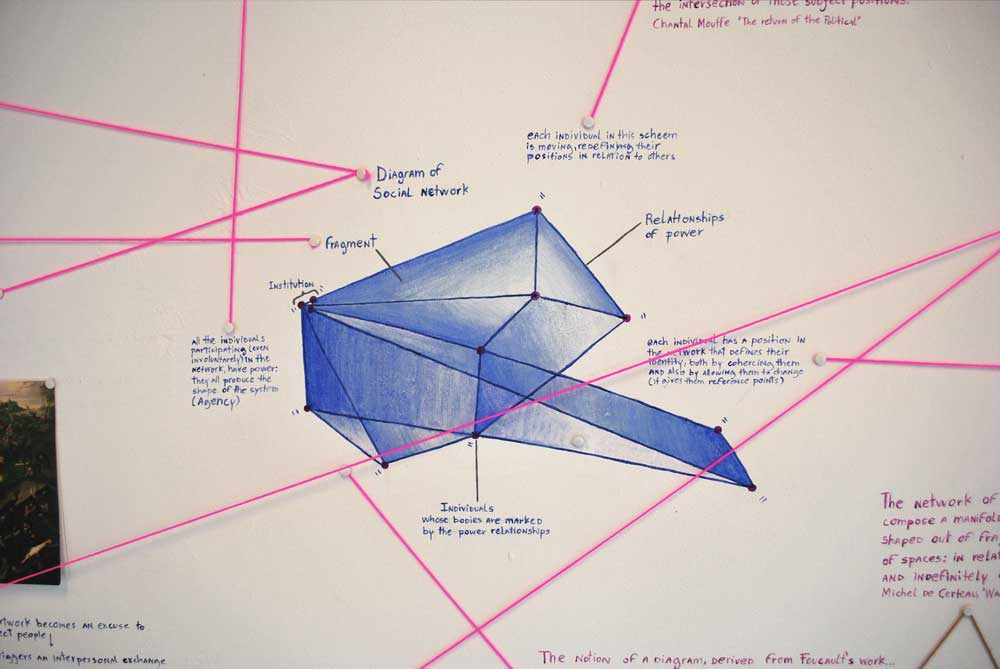 the intersection of those subject positions.
Chantal Mouffe "The return of the Political"
each individual in this scheem
is moving, redefining their
positions in relation to others
Diagram of
Social network
Relationships
of power
Fragment
Institution
All the individuals
participating (even
involuntarely) in the
network, have power:
they all produce the
shape of the system
(Agency)
each individual has a position in
the network that defines their
identity, both by cohercing them
and also by allowing them to change
(it gives them reference points)
Individuals
whose bodies are marked
by the power relationships
The network of
compose a manifol
shaped out of fra
of spaces: in rela
and indefinitely
Michel de Certeau "Wa
twork becomes an excuse to
ect people
iggers an interpersonal exchange
The notion of a diagram, derived from Foucault's work...